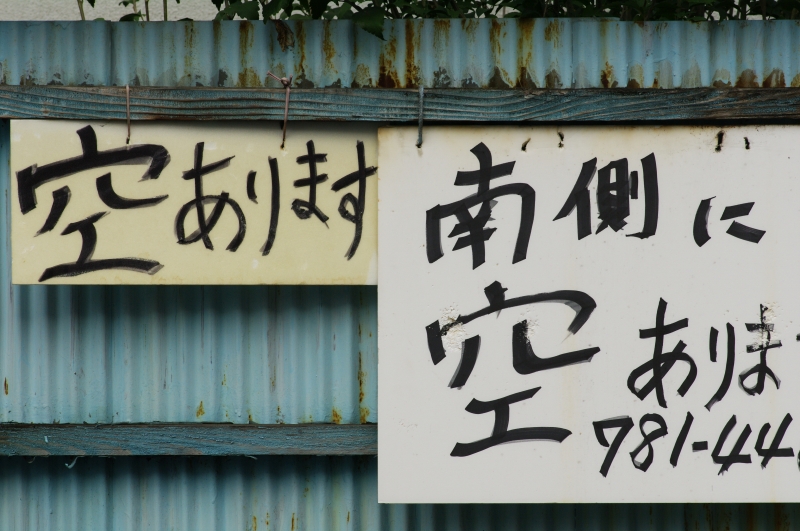 空あります
南側に
空
ありま
781-44